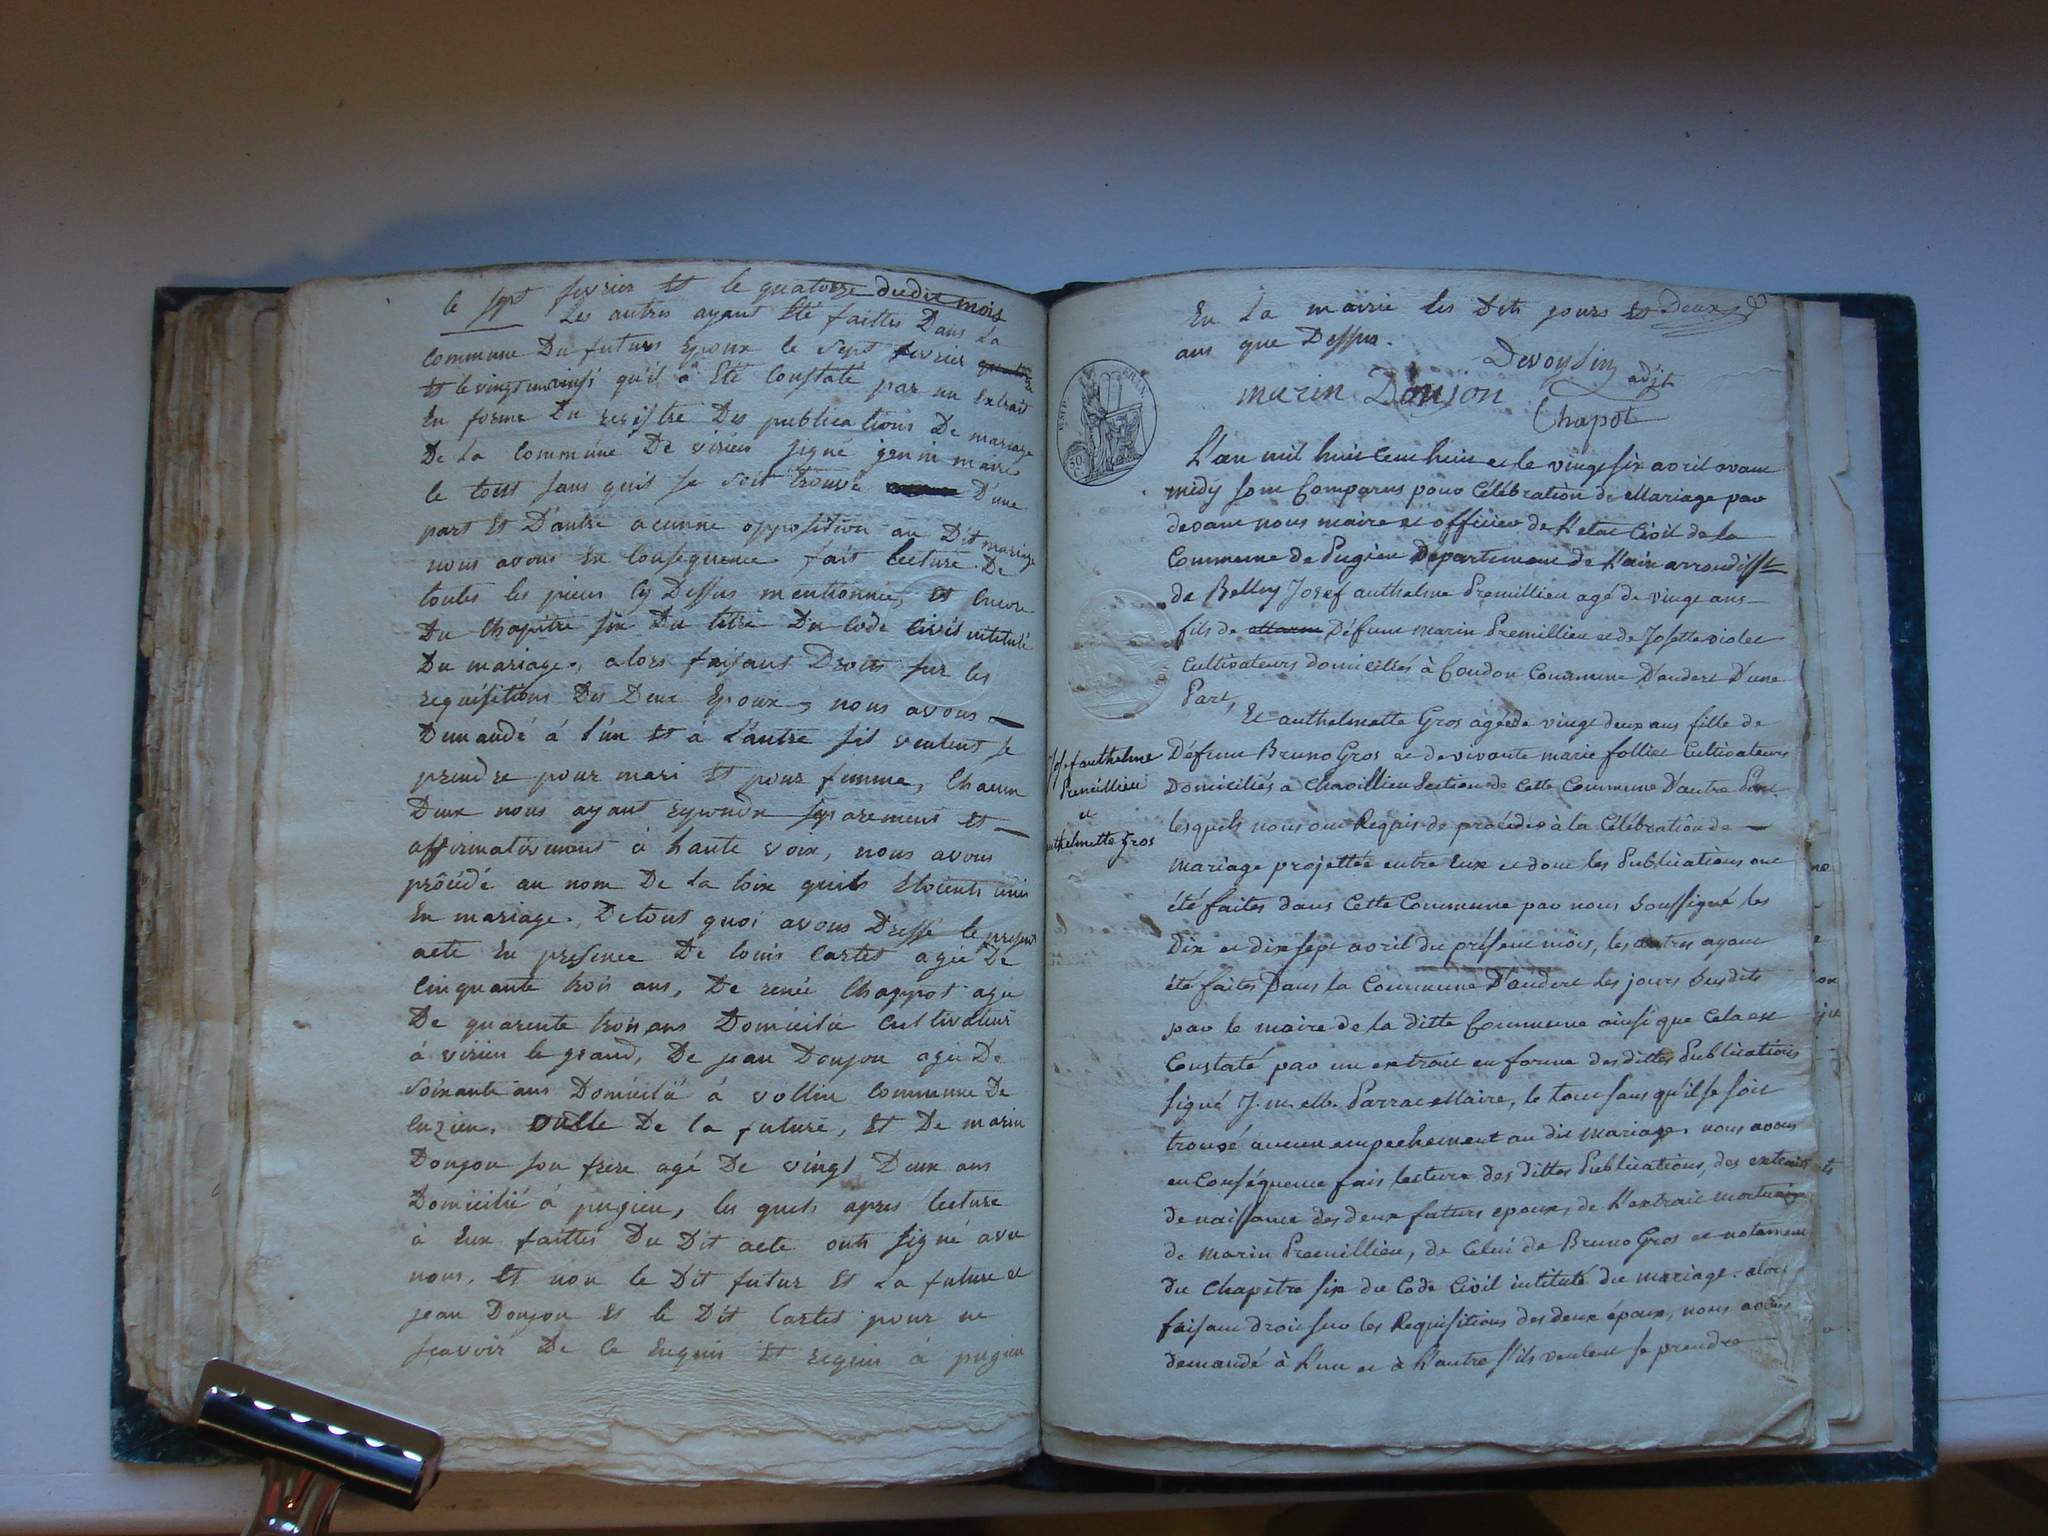 le sept fevrier Et le quatorze dudit mois
Les autres ayant Eté faittes Dans La
commune Du futurs Epoux le sept fevrier
Et le vingt un ainsi qu'il a Eté Constaté par un Extrait
En forme Du registre Des publications De mariage
De La commune De virieu signé genin maire
le tout sans quil se soit trouvé D'une
part Et D'autre acunne opposition au Dit mariage
nous avons En Consequence fait lecture De
toutes les pieces Cy Dessus mentionnée, Et Encore
Du Chapitre six Du titre Du Code Civil intitulé
Du mariage, alors faisant Droits sur les
requisitions Des Deux Epoux, nous avons
Demandé à l'un Et à L'autre s'il veulent se
prendre pour mari Et pour femme, Chacun
Deux nous ayant repondu separement Et
affirmativement à haute voix, nous avons
prôcédé au nom De La loix quils Etoients unis
En mariage. De tout quoi avons Dressé le present
acte En presence De louis Cartet agée De
Cinquante trois ans, De renée Chappot agee
De quarente trois ans Domicilié Cultivateur
à virieu le grand, De jean Donjon agée De
Soixante ans Domicilié à vollin commune De
Cuzieu, De la future, Et De marin
Donjon son frere agé De vingt Deux ans
Domicilié à pugieu, les quels apres lecture
à Eux faittes Du Dit acte onts signé avec
nous, Et non le Dit futur Et La future et
jean Donjon Et le Dit Cartet pour ne
scavoir De Ce Enquis Et requis à pugieu
En La mairie les Dits jours Et Deux
ans que Dessus.
Devoysin adjt
marin Donjon
Chapot
L'an mil huit Cent huit et le vingt six avril avant
midy sont Comparus pour Célébration de Mariage par
devant nous maire et officier de L'etat Civil de la
Commune de Pugieu Departement de L'ain arrondisst
de Belley Josef anthelme Premillieu agé de vingt ans
fils de Défunt marin Premillieu et de Josette violet
Cultivateurs domiciliés à Coudon Commune D'andert D'une
Part,
Et anthelmette Gros agée de vingt deux ans fille de
Défunt Bruno Gros et de vivante marie follict Cultivateurs
Domiciliés a Chavillieu Section de Cette Commune D'autre Part
Josef anthelme
Premillieu
et
anthelmette Gros
lesquels nous ont Requis de procéder à la Célébration de
mariage projettée entre Eux et dont les Publications ont
été faites dans Cette Commune par nous Soussigné les
Dix et dix sept avril du présent mois, les autres ayant
été faites Dans la Commune D'andert les jours Susdits
par le maire de la ditte Commune ainsi que Cela est
Constaté par un extrait en forme des dittes Publications
signé J. m. Parrat Maire, le tout sans qu'il se soit
trouvé aucun empechement au dit mariage. nous avons
en Conséquence fait lecture des dittes Publications, des extraits
de naissance des deux futurs epoux, de L'extrait mortuaire
de marin Premillieu, de Celui de Bruno Gros et notament
du Chapitre six du Code Civil intitulé du mariage. alors
faisant droit sur les Requisitions des deux époux, nous avons
demandé à L'un et à L'autre s'ils veulent se prendre